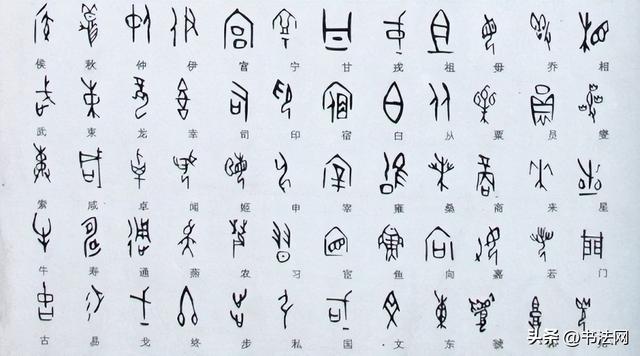 侯 秋 仲 伊 宫 宁 甘 戎 祖 毋 乔 相
武 束 龙 幸 司 印 宿 白 从 粟 员 燮
索 咸 卓 闻 姬 申 宰 雍 桑 商 来 星
牛 寿 通 燕 农 习 宦 鱼 向 嘉 若 门
古 易 戈 终 步 私 国 文 东 虢
头条 @书法网